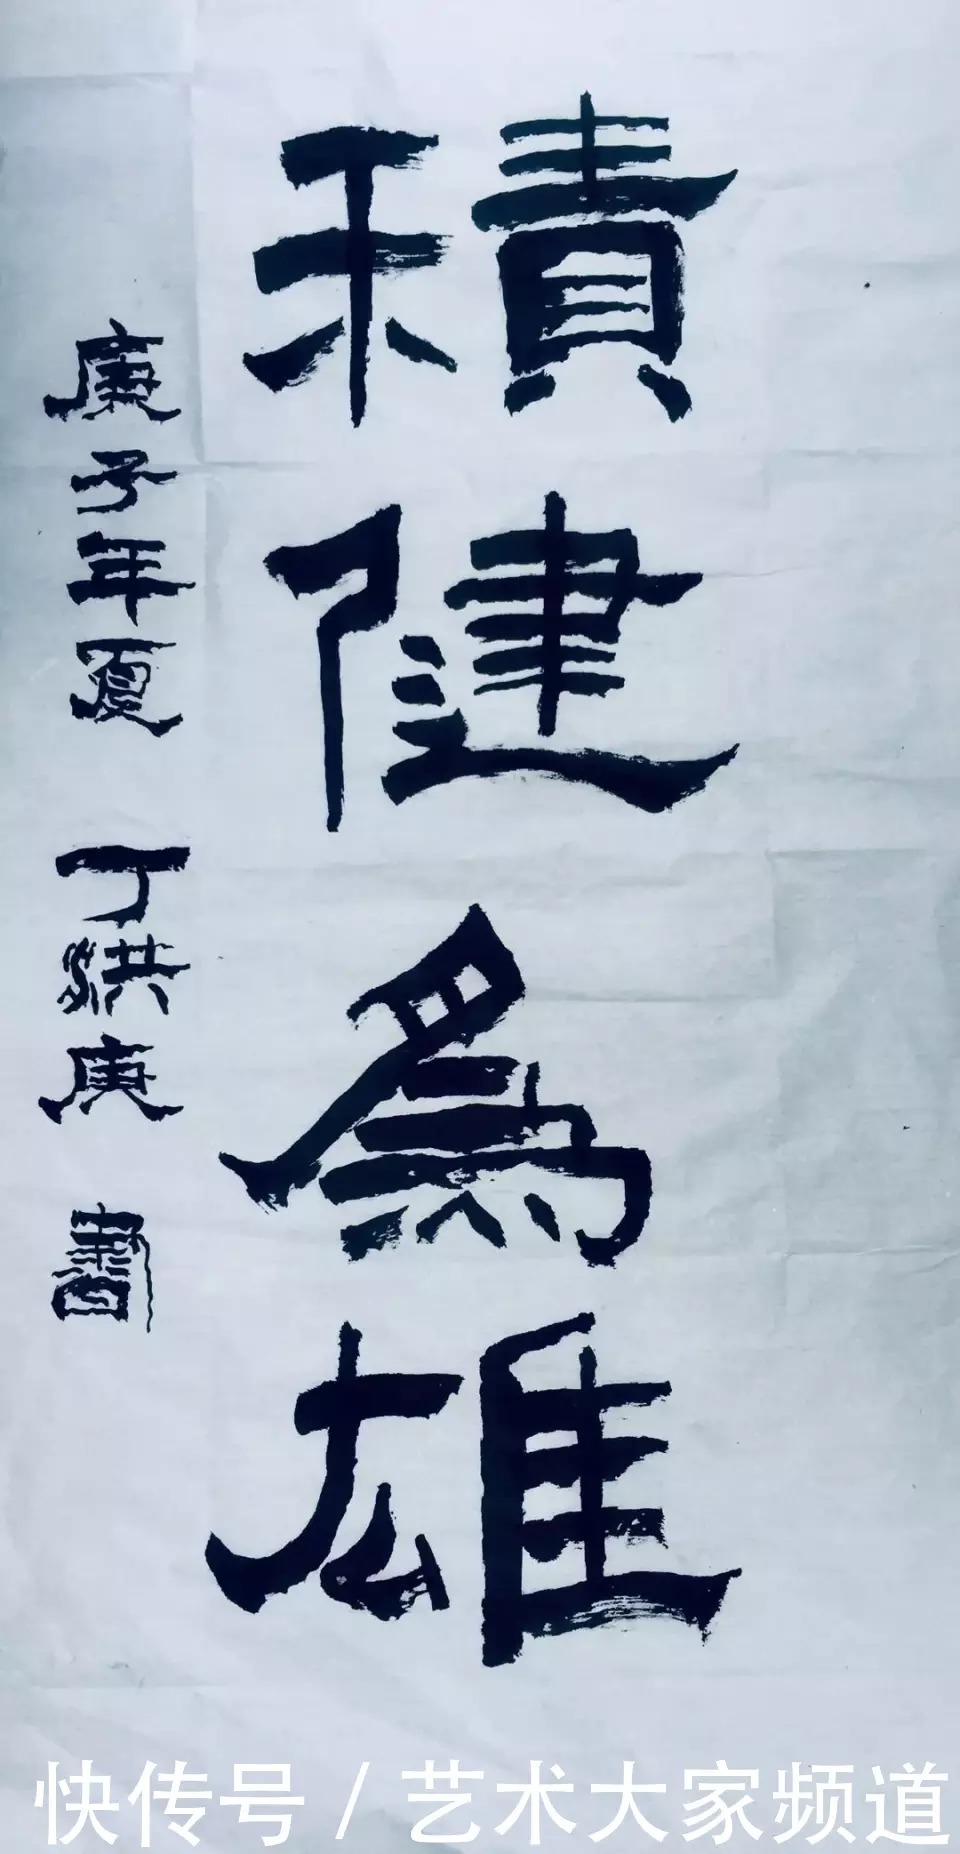 積健為雄
庚子年夏 丁洪庚 書
快传号 / 艺术大家频道